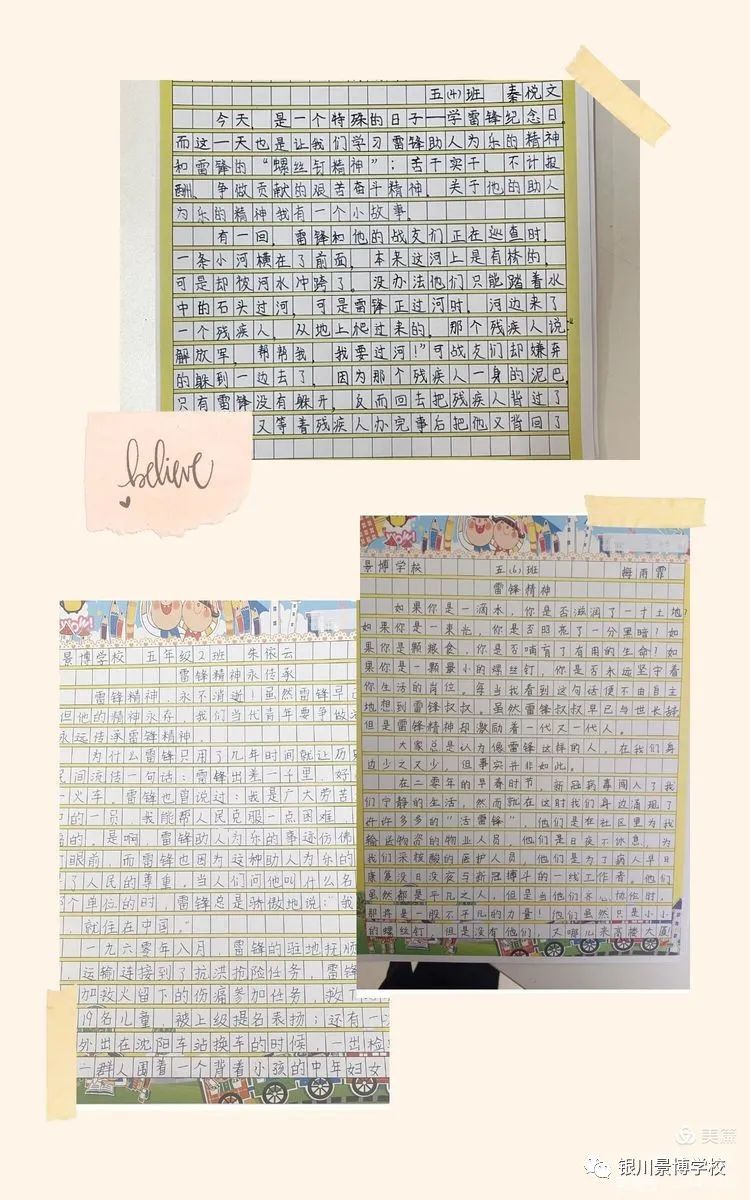 五(4)班 秦悦文
今天,是一个特殊的日子——学雷锋纪念日,
而这一天也是让我们学习雷锋助人为乐的精神
和雷锋的“螺丝钉精神”;苦干实干、不计报
酬、争做贡献的艰苦奋斗精神。关于他的助人
为乐的精神我有一个小故事。
有一回,雷锋和他的战友们正在巡查时,
一条小河横在了前面,本来这河上是有桥的,
可是却被河水冲跨了。没办法他们只能踏着水
中的石头过河,可是雷锋正过河时,河边来了
一个残疾人,从地上爬过来的,那个残疾人说:“
解放军,帮帮我,我要过河!”可战友们却嫌弃
的躲到一边去了,因为那个残疾人一身的泥巴,
只有雷锋没有躲开,反而回去把残疾人背过了
又等着残疾人办完事后把他又背回了
believe
景博学校 五(6)班 梅雨霏
雷锋精神
如果你是一滴水,你是否滋润了一寸土地?
如果你是一束光,你是否照亮了一分黑暗?如
果你是颗粮食,你是否哺育了有用的生命?如
果你是一颗最小的螺丝钉,你是否永远坚守着
你生活的岗位。每当我看到这句话便不由自主
地想到雷锋叔叔。虽然雷锋叔叔早已与世长辞
但是雷锋精神却激励着一代又一代人。
大家总是认为像雷锋这样的人,在我们身
边少之又少,但事实并非如此。
在二零年的早春时节,新冠病毒闯入了我
们宁静的生活,然而就在这时我们身边涌现了
许许多多的“活雷锋”,他们是在社区里为我
输送物资的物业人员,他们是日夜不休息,为
我们采核酸的医护人员,他们是为了病人早日
康复没日没夜与新冠搏斗的一线工作者。他们
虽然都是平凡之人,但是当他们齐心协作时,
那将是一股不平凡的力量!他们虽然只是小小
的螺丝钉,但是没有他们,又哪儿来高楼大厦
景博学校 五年级2班 朱依云
雷锋精神永传承
雷锋精神,永不消逝!虽然雷锋早已
但他的精神永存,我们当代青年要争做
永远传承雷锋精神。
为什么雷锋只用了几年时间就让历
民间流传一句话:雷锋出差一千里,好
一火车。雷锋也曾说过:我是广大劳苦
中的一员,我能帮人民克服一点困难,
福的。是啊,雷锋助人为乐的事迹仿佛
眼前,而雷锋也因为这种助人为乐的
了人民的尊重,当人们问他叫什么名
个单位的时,雷锋总是骄傲地说:“我
就住在中国。”
一九六零年八月,雷锋的驻地抚顺
,运输连接到了抗洪抢险任务,雷锋
加救火留下的伤痛参加任务,救下
19名儿童,被上级提名表扬;还有一
外出在沈阳车站换车的时候,一出检
一群人围着一个背着小孩的中年妇女
美篇
银川景博学校